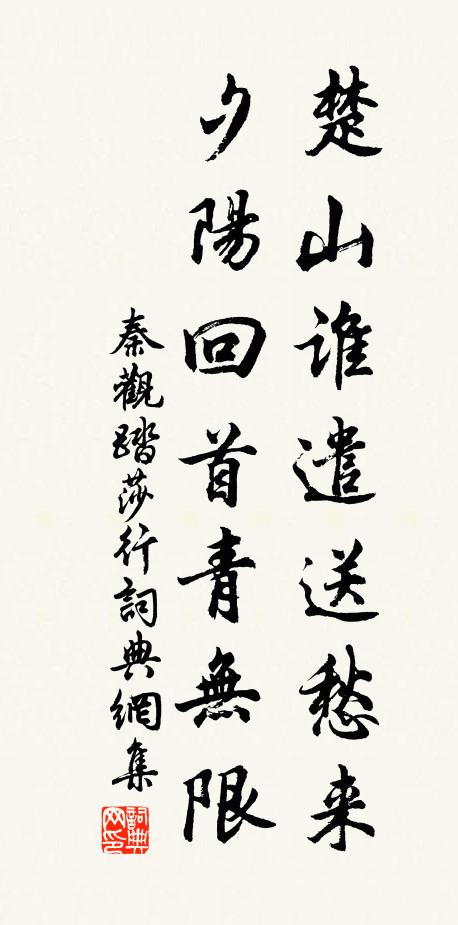 楚山谁遣送愁来
夕陽回首青無限
秦觀踏莎行詞典網集
詞典网印